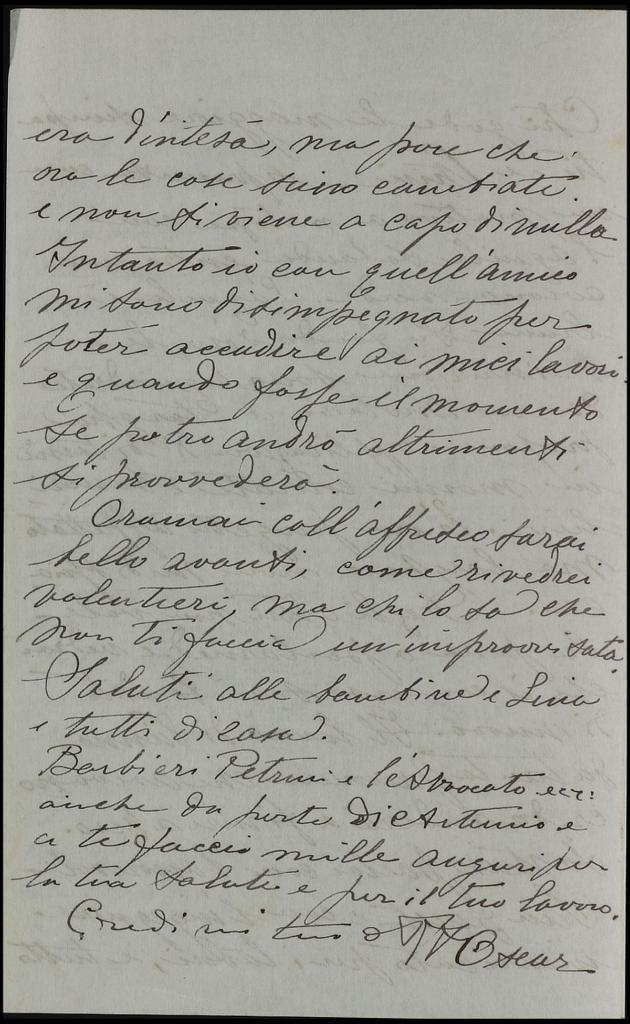 era d'intesa, ma pare che
ora le cose siino cambiate
e non si viene a capo di nulla
Intanto io con quell'amico
mi sono disimpegnato per
poter accudire ai miei lavori
e quando fosse il momento
se potro andrò altrimenti
si provvederà.
Oramai coll'affresco sarai
bello avanti, come rivedrei
volentieri, ma chi lo sa che
non ti faccia un'improvvisata.
Saluti alle bambine e Lina
e tutti di casa.
Barbieri Petrini e l'Avvocato ecc:
anche da parte di Artemio e
a te faccio mille auguri per
la tua salute e per il tuo lavoro.
Credi mi tuo Oscar